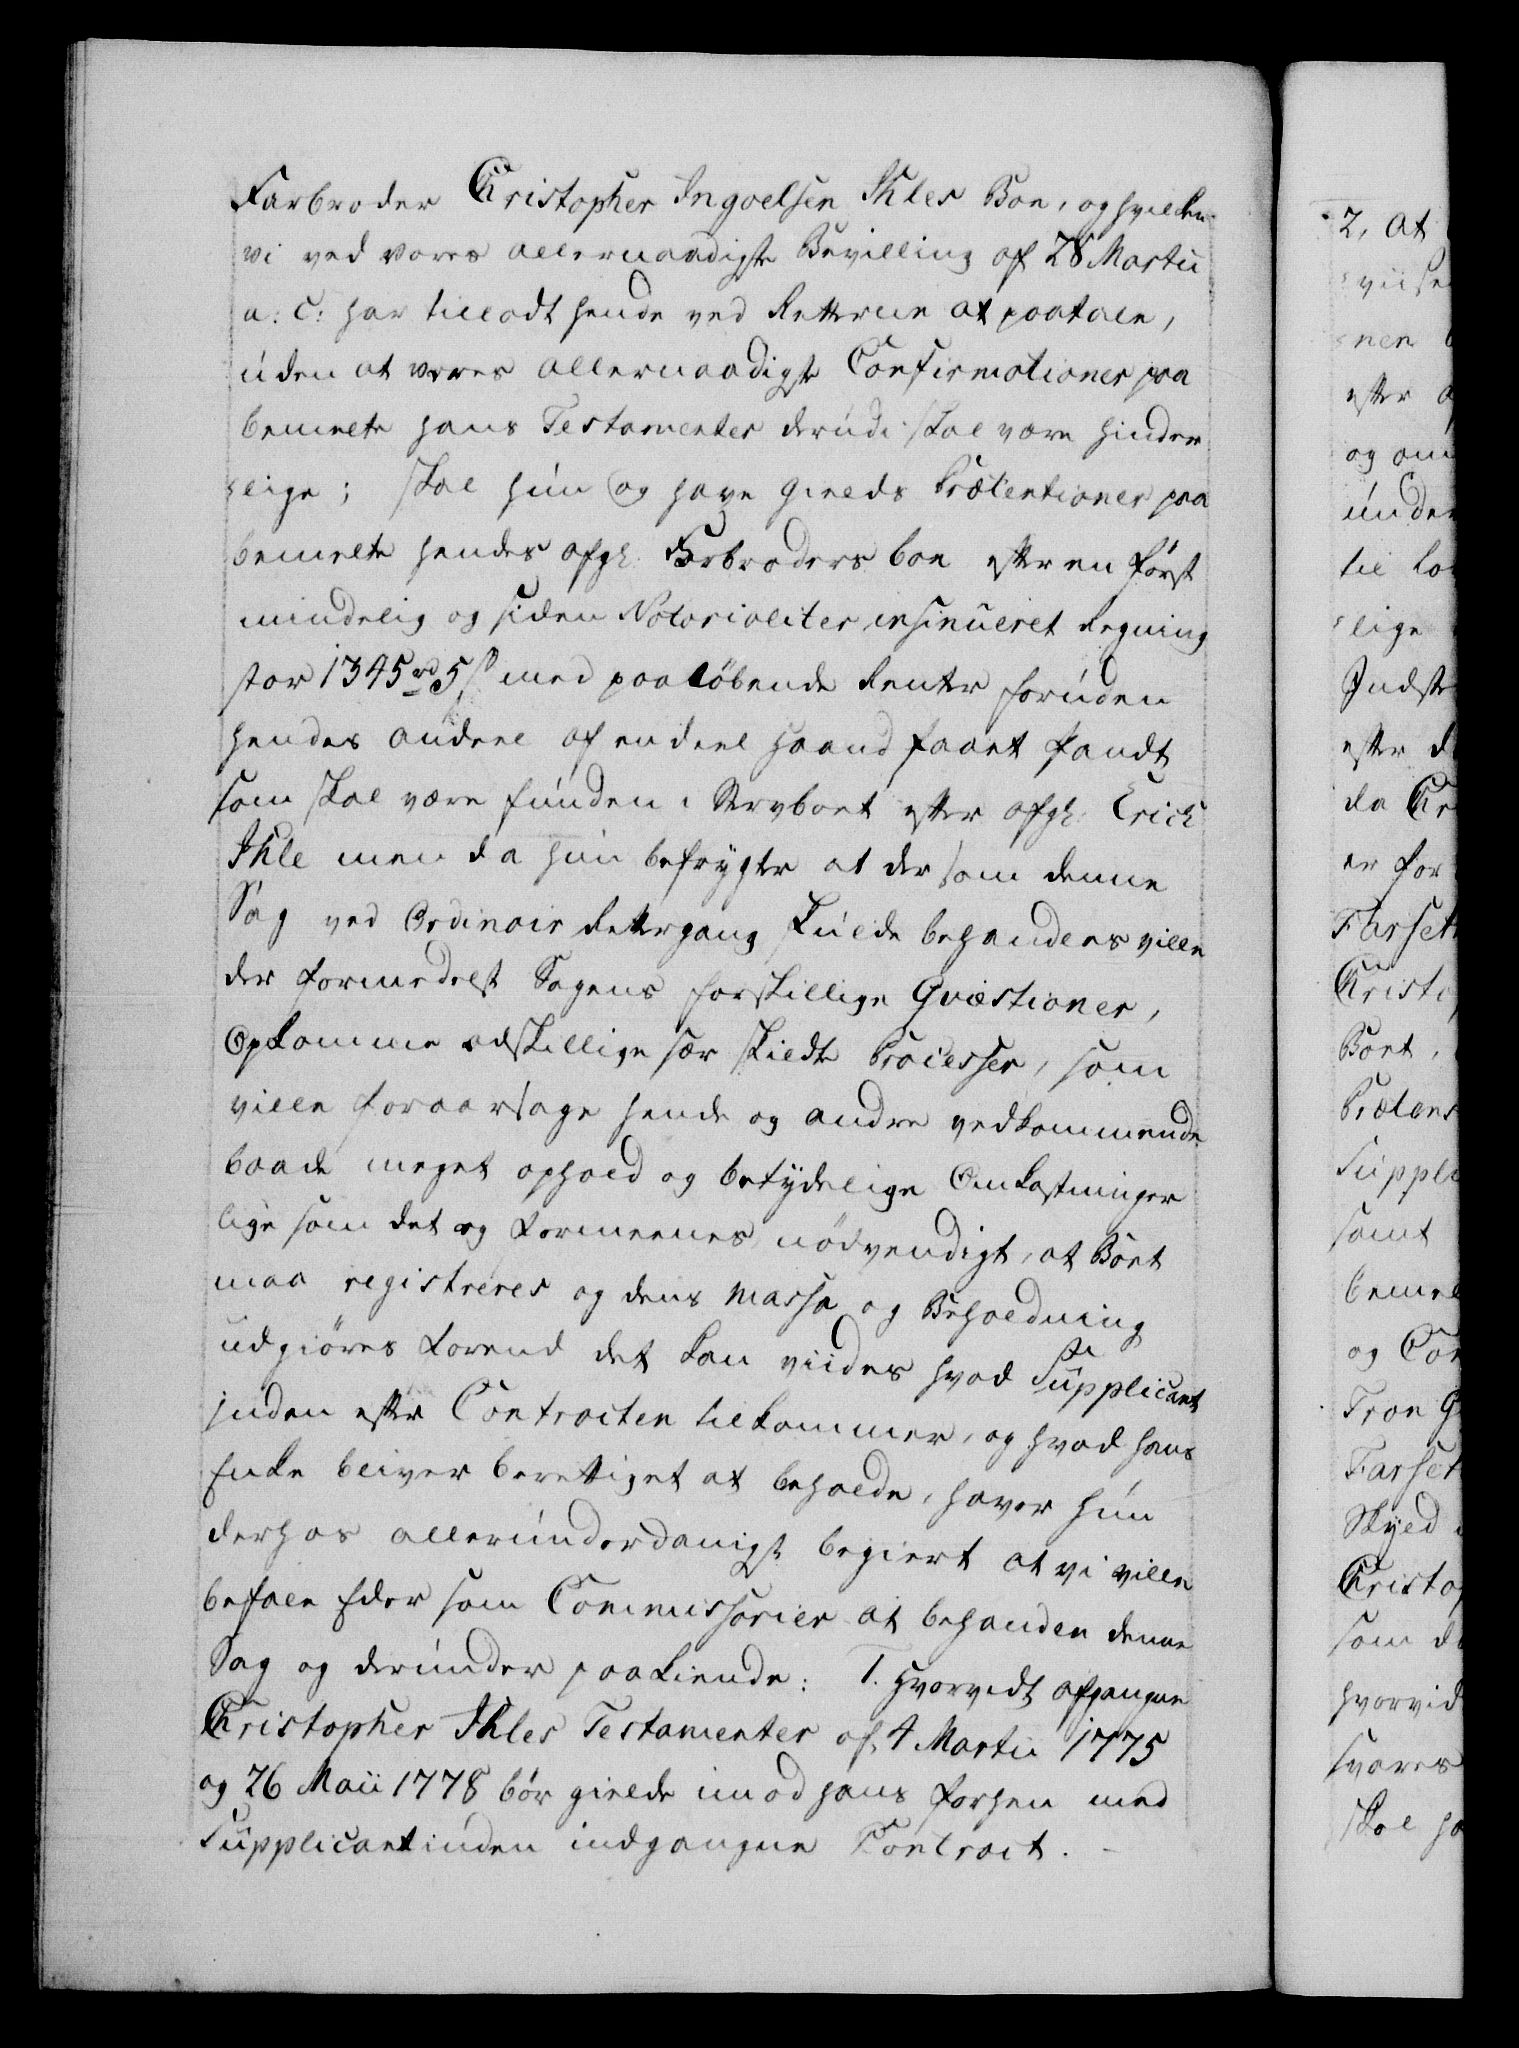 Farbroder Christopher Ingvelsen Ihles Boe, og hvilken
vi ved vores allernaadigste Bevilling af 28 Martii
a: c: har tilladt hende ved Retterne at paatale,
uden at vores allernaadigste Confirmationer paa
bemelte hans Testamenter derudi skal være hinder
lige; skal hun og have Gields Prætentioner paa
bemelte hendes afg: Farbroders boe efter en først
mindelig og siden Notorialiter insinueret Regning
stor 1345 rd 5 s med paaløbende Renter foruden
hendes andeel af en deel haand faaet Pandt
som skal være funden i Stervboet efter afg: Erich
Ihle men da hun befrygter at dersom denne
Sag ved Ordinair Rettergang skulde behandles ville
der formedelst Sagens forskillige Qvæstioner,
Opkomme adskillige sær skildte Processer, som
ville foraarsage hende og andre vedkommende
baade meget ophold og betydelige Omkostninger
lige som det og formeenes nødvendigt, at Boet
maa registreres og dens Massa og Beholdning
udgiøres forend det kan viides hvad Supplicant
inden efter Contracten tilkommer, og hvad hans
Enke bliver berettiget at beholde, haver hun
derhos allerunderdanigst begiert at vi ville
befale Eder som Commissarier at behandle denne
Sag og derunder paakiende: 1. hvorvidt afgangne
Christopher Ihles Testamenter af 4 Martii 1775
og 26 Maii 1778 bør gielde imod hans forhen med
Supplicantinden indgangne Contract.
2, at
viise
nen
efter
og om
under
til
lige
Indst
efter d
da Chr
er for
Farset
Christo
Boet,
Prætens
Suppli
samt
bemel
og Con
Tron G
Farset
Skyed
Christop
som d
hvorvid
svares
skal ha